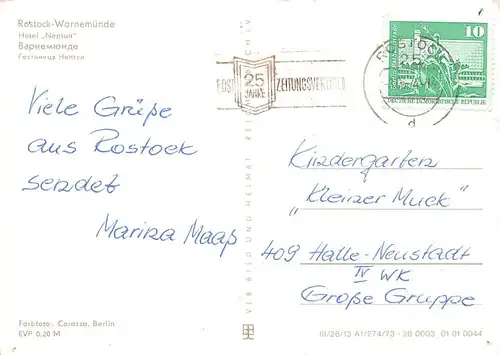 Rostock-Warnemünde
Hotel „Neptun"
Варнемюнде
Гостиница Нептун
25
JAHRE
POST
ZEITUNGSVERTRIEB
ROSTOCK
25
d
10
DEUTSCHE DEMOKRATISCHE REPUBLIK
Viele Grüße
aus Rostock
sendet
Marina Maaß
Kindergarten
„Kleiner Muck"
409 Halle-Neustadt
IV WK
Große Gruppe
VEB BILD UND HEIMAT REICHENBACH I. V.
Farbfoto: Corazza, Berlin
EVP 0,20 M
III/26/13 A1/274/73 - 28 0003 01 01 0044